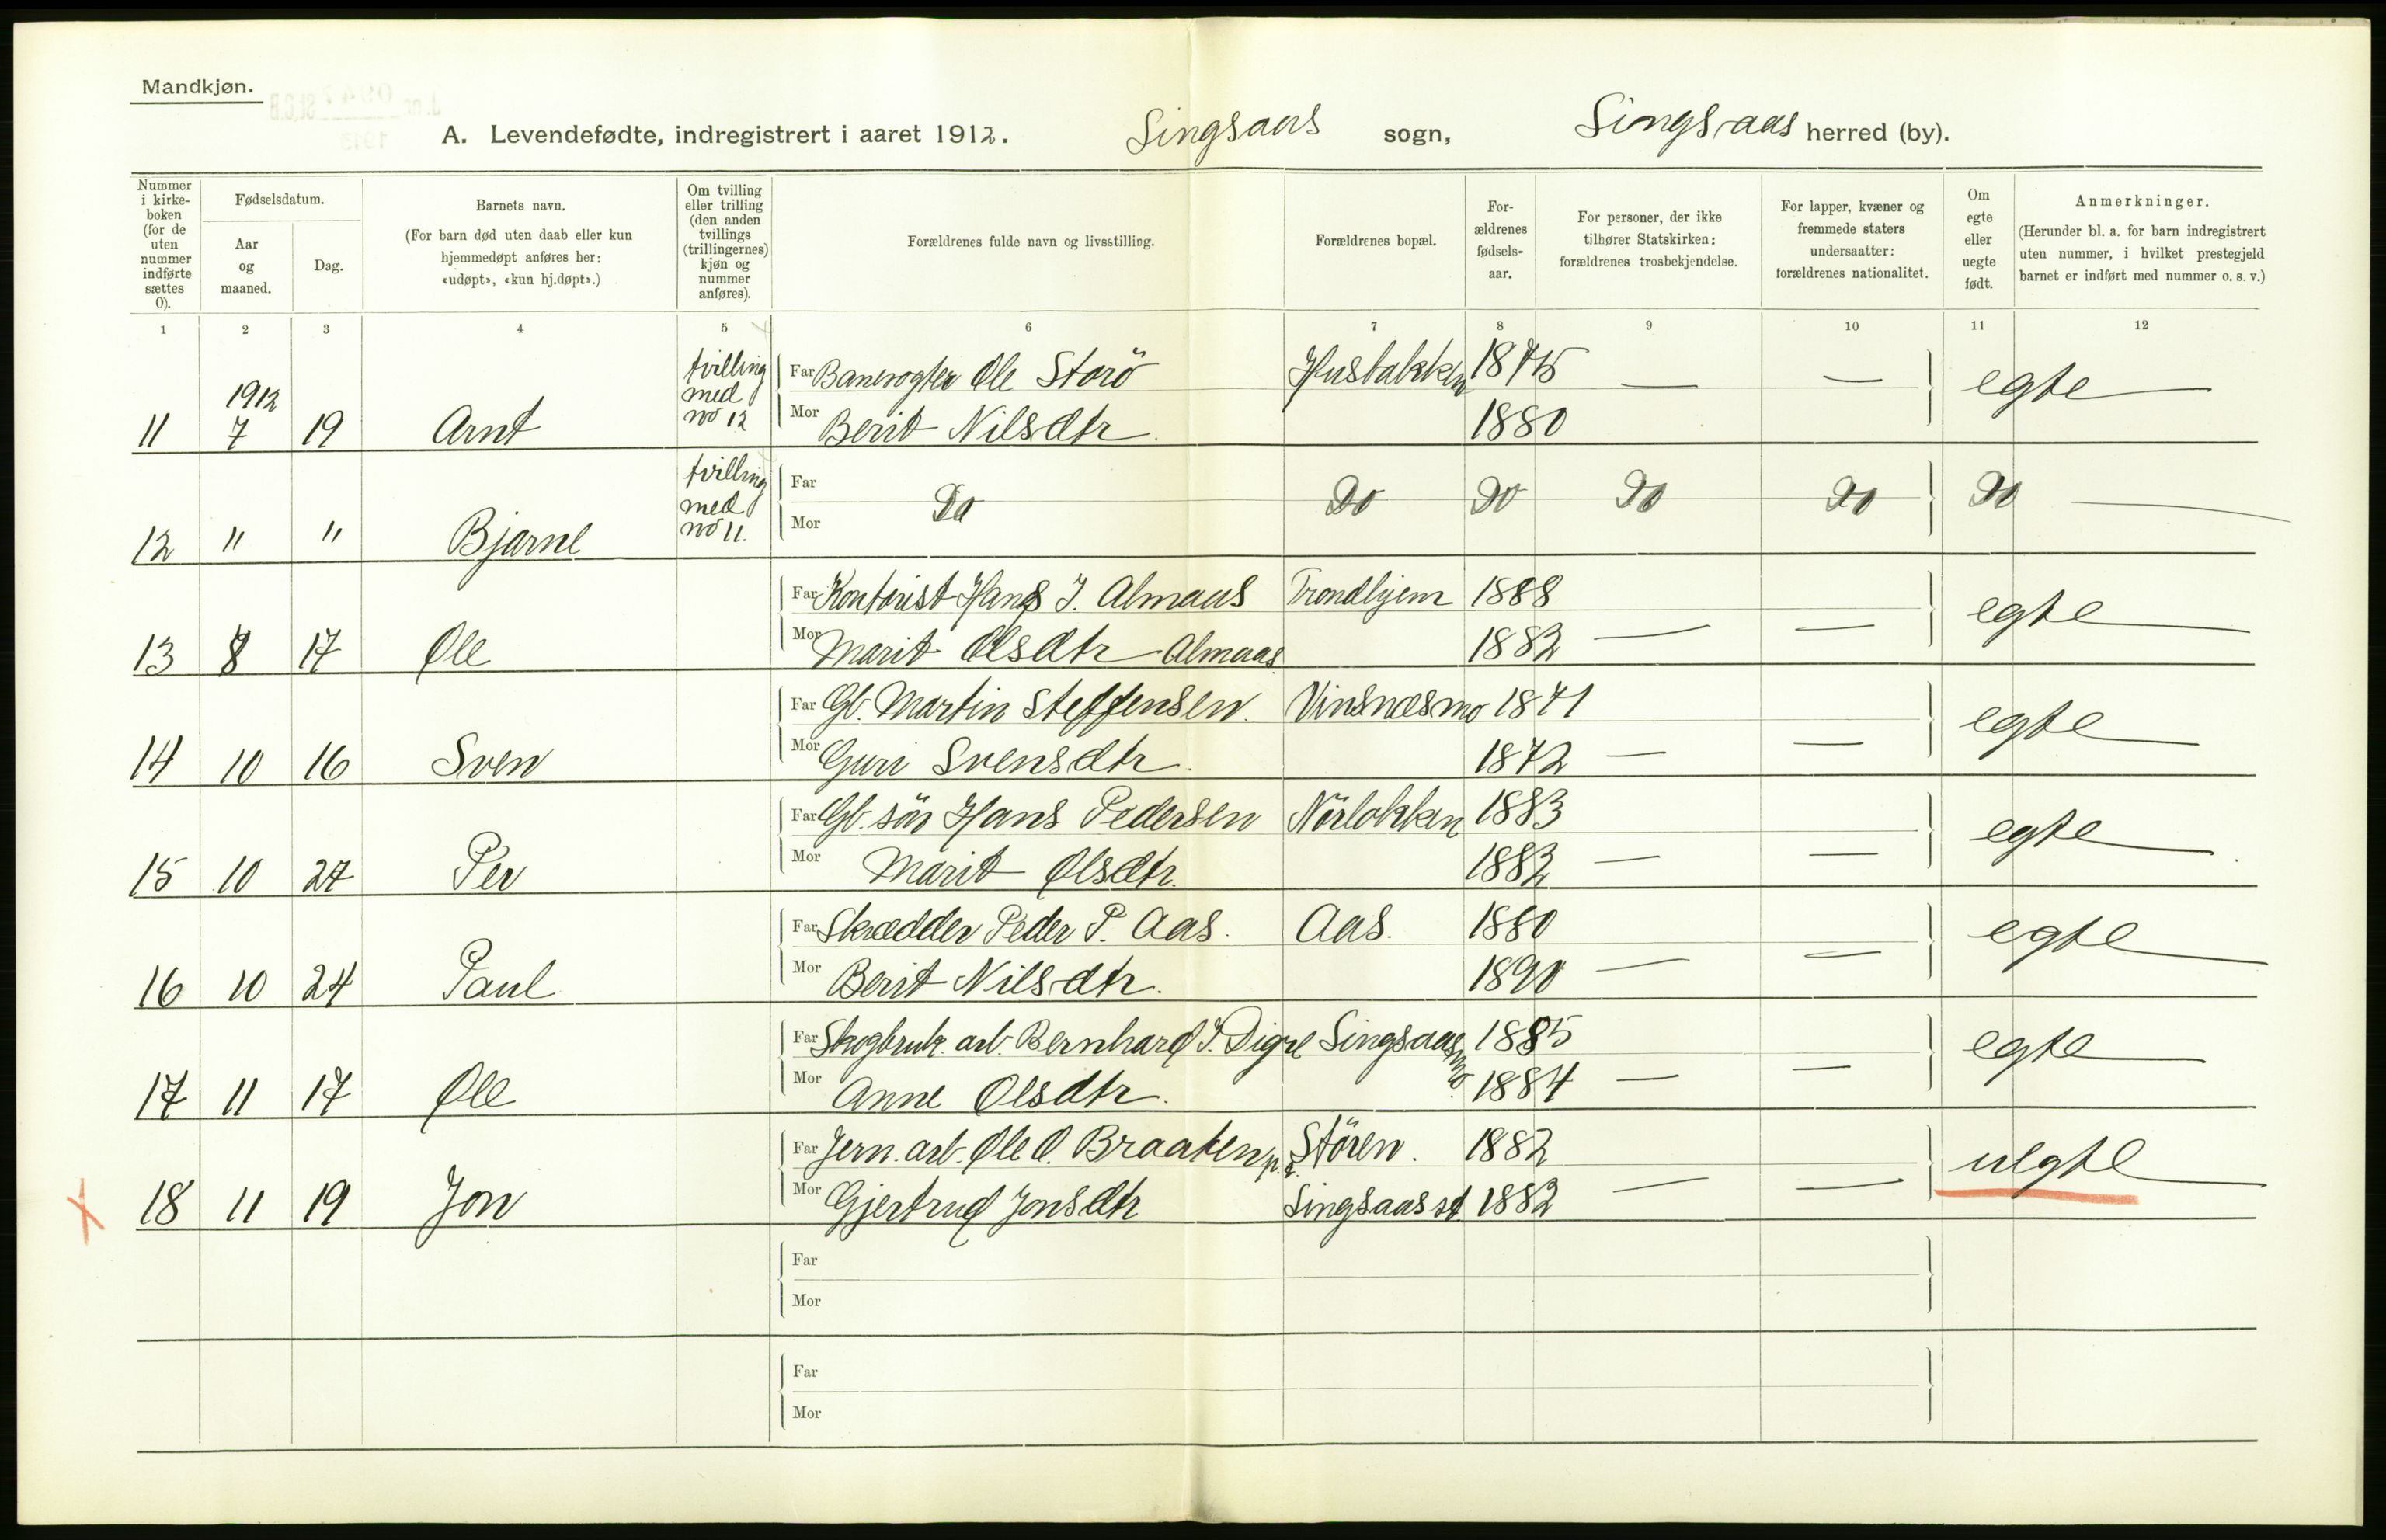 Mandkjøn.
A. Levendefødte, indregistrert i aaret 1912. Singsaas sogn, Singsaas herred (by).
Nummer i kirke-boken (for de uten nummer indførte sættes 0).
Fødselsdatum.
Aar og maaned.
Dag.
Barnets navn.
(For barn død uten daab eller kun hjemmedøpt anføres her: «udøpt», «kun hj.døpt».)
Om tvilling eller trilling (den anden tvillings (trillingernes) kjøn og nummer anføres).
Forældrenes fulde navn og livsstilling.
Forældrenes bopæl.
For-ældrenes fødsels-aar.
For personer, der ikke tilhører Statskirken: forældrenes trosbekjendelse.
For lapper, kvæner og fremmede staters undersaatter: forældrenes nationalitet.
Om egte eller uegte født.
Anmerkninger.
(Herunder bl. a. for barn indregistrert uten nummer, i hvilket prestegjeld barnet er indført med nummer o. s. v.)
1 2 3 4 5 6 7 8 9 10 11 12
tvilling med no 12 Far Banevogter Ole Storö 1875 — — egte
1912
11 7 19 Arnt Mor Berit Nilsdtr. 1880
tvilling med no 11. Far Do Do Do Do Do Do
12 " " Bjarne Mor
Far Kontorist Hans J. Almaas Trondhjem 1888 egte
13 8 17 Ole Mor Marit Olsdtr Almaas 1882 — —
Far Gb. Martin Steffensen. Vinsnesmo 1871 egte
14 10 16 Sven Mor Guri Svensdtr. 1872 — —
Far Gb. sön Hans Pedersen 1883 egte
15 10 27 Per Mor Marit Olsdtr. 1882 — —
Far Skrædder Peder P. Aas. Aas. 1880 egte
16 10 24 Paul Mor Berit Nilsdtr. 1890 — —
Far Skogbruk. arb. Bernhard J. Digre Singsaasmo 1885 egte
17 11 17 Ole Mor Anne Olsdtr. 1884 — —
Far Jern. arb. Ole O. Braaten Stören. 1882 uegte
18 11 19 Jon Mor Gjertrud Jonsdtr Singsaas st 1882 — —
Far
Mor
Far
Mor